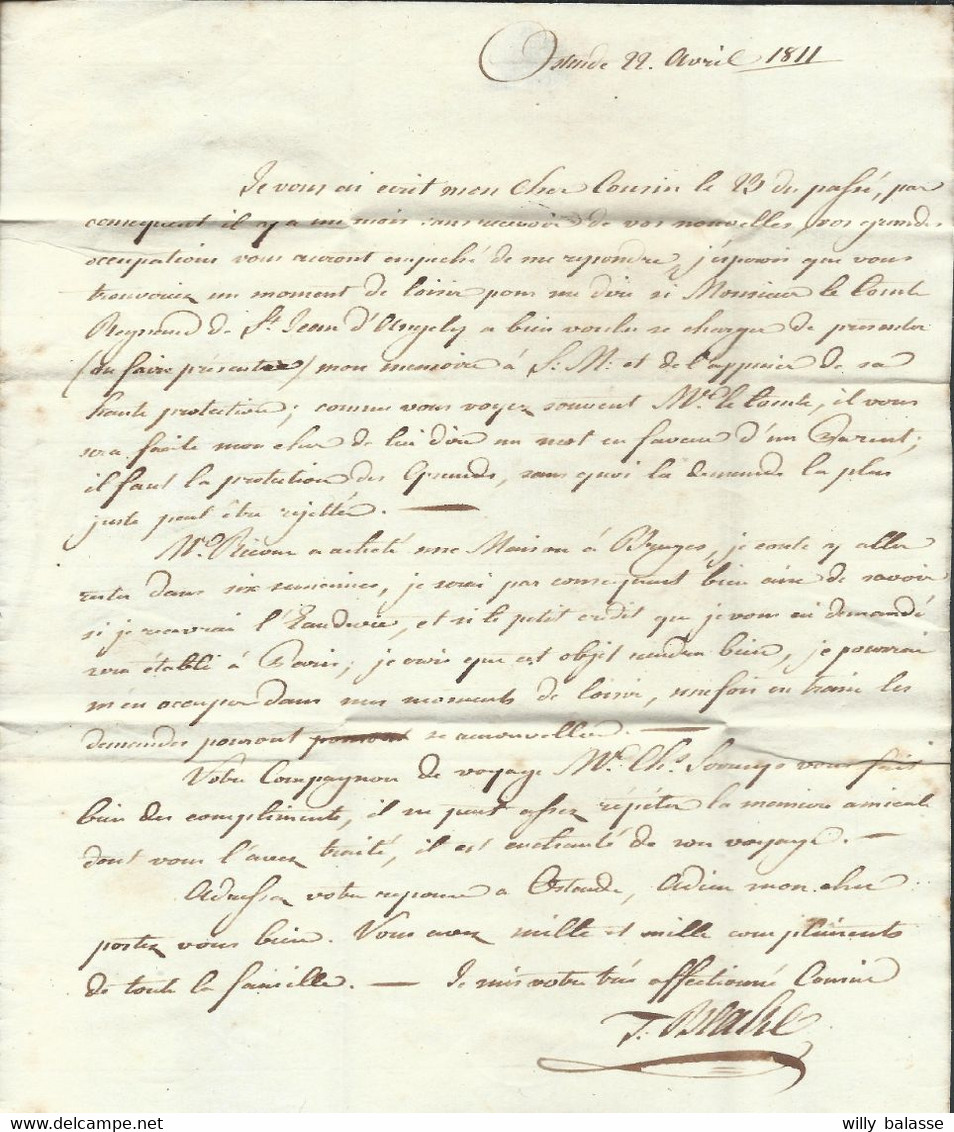 Ostende 22. Avril 1811
Je vous ai ecrit mon cher Cousin le 23 du passé, par
consequent il y a un mois sans recevoir de vos nouvelles, vos grandes
occupations vous auront empeché de me repondre, j'espérois que vous
trouveriez un moment de loisir pour me dire si Monsieur le Comte
Regnaud de St. Jean d'Angely a bien voulu se charger de presenter
(ou faire présenter) mon memoire à S. M. et de l'appuier de sa
haute protection; comme vous voyez souvent Mr. le Comte, il vous
sera facile mon cher de lui dire un mot en faveur d'un Parent;
il faut la protection des Grands, sans quoi la demande la plus
juste peut être rejettée. —
Mr. a acheté une Maison à Bruges, je conte y aller
rester dans six semaines, je serai par consequent bien aise de savoir
si je recevrai l'Eaudevie, et si le petit crédit que je vous ai demandé
sera établi à Paris; je crois que cet objet rendra bien, je pourrai
m'en occuper dans mes moments de loisir, une fois en train les
demandes pouront se renouveller. —
Votre Compagnon de voyage Mr. Chs. vous fait
bien des compliments, il ne peut assez répéter la maniere amicale
dont vous l'avez traité, il est enchanté de son voyage. —
Adressez votre reponse a Ostende, Adieu mon cher
portez vous bien. Vous avez mille et mille compliments
de toute la famille. — Je suis votre très affectionné Cousin
willy balasse